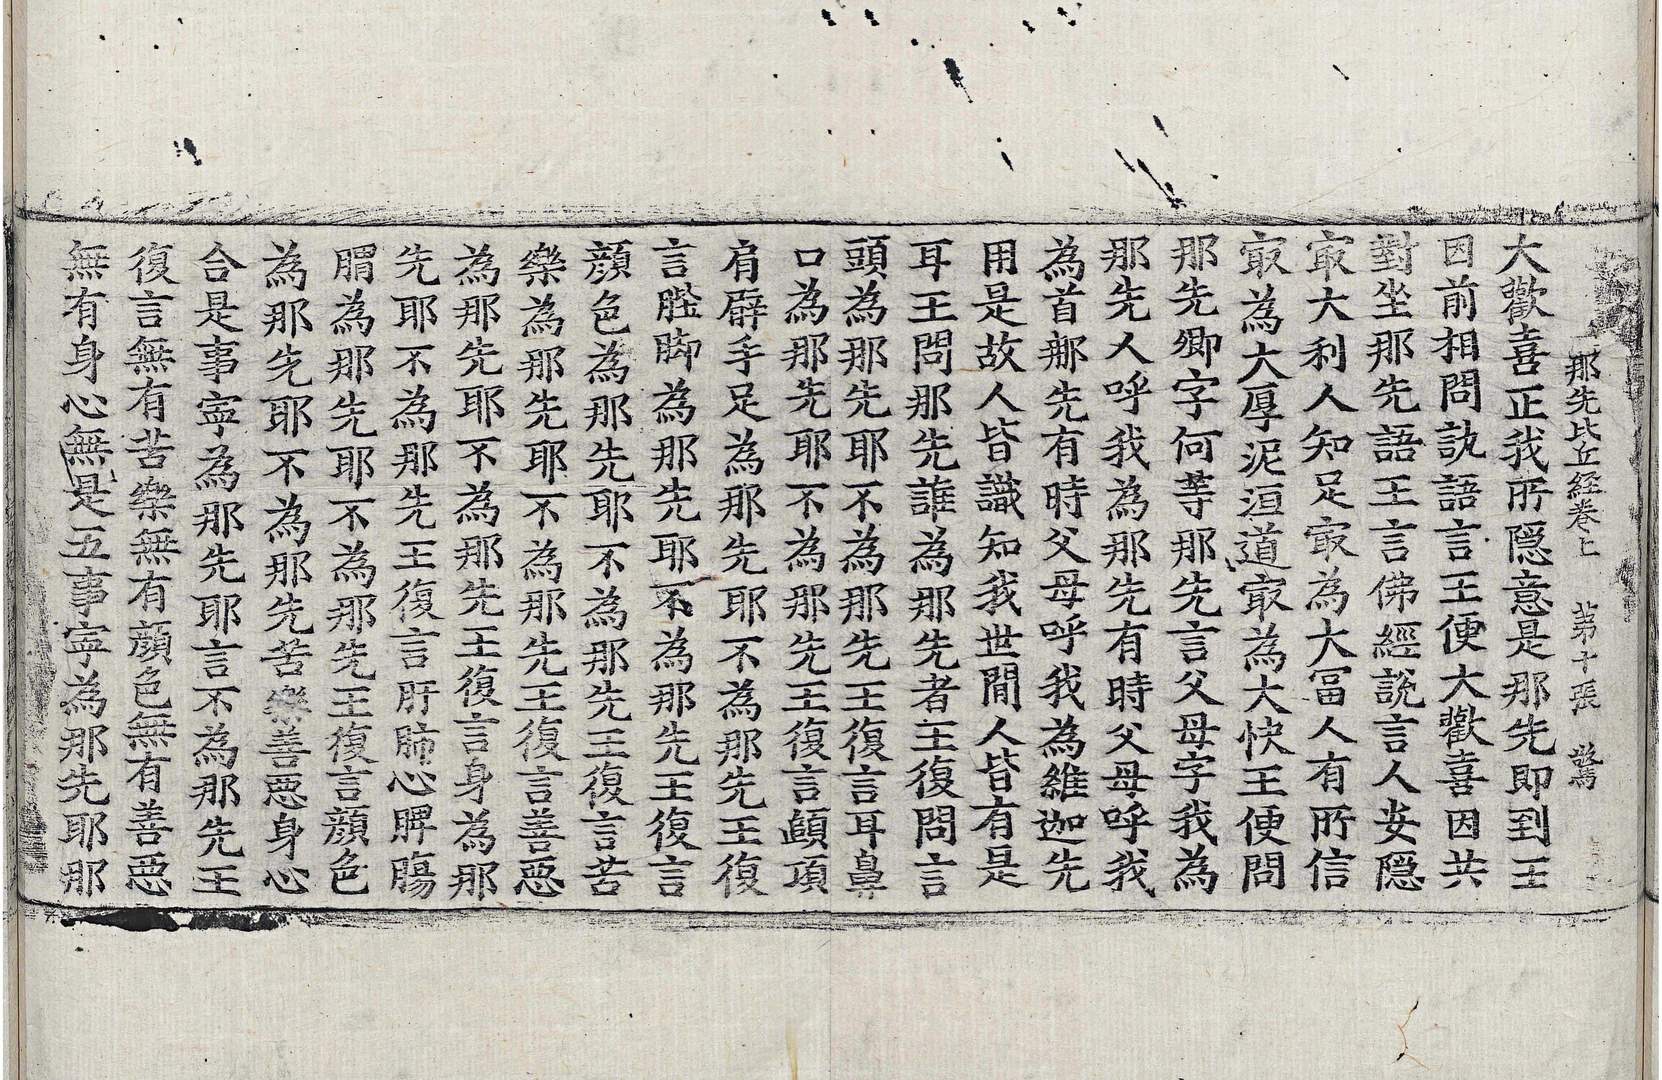 那先比丘経卷上 苐十張 驚
大歡喜正我所隠意是那先即到王
因前相問訊語言王便大歡喜因共
對坐那先語王言佛經說言人安隠
㝡大利人知足㝡為大冨人有所信
㝡為大厚泥洹道㝡為大快王便問
那先卿字何等那先言父母字我為
那先人呼我為那先有時父母呼我
為首那先有時父母呼我為維迦先
用是故人皆識知我世間人皆有是
耳王問那先誰為那先者王復問言
頭為那先耶不為那先王復言耳鼻
口為那先耶不為那先王復言顛項
肩臂手足為那先耶不為那先王復
言䏶脚為那先耶不為那先王復言
顔色為那先耶不為那先王復言苦
樂為那先耶不為那先王復言善惡
為那先耶不為那先王復言身為那
先耶不為那先王復言肝肺心脾腸
胃為那先耶不為那先王復言顔色
為那先耶不為那先苦樂善惡身心
合是事寧為那先耶言不為那先王
復言無有苦樂無有顔色無有善惡
無有身心無是五事寧為那先耶那